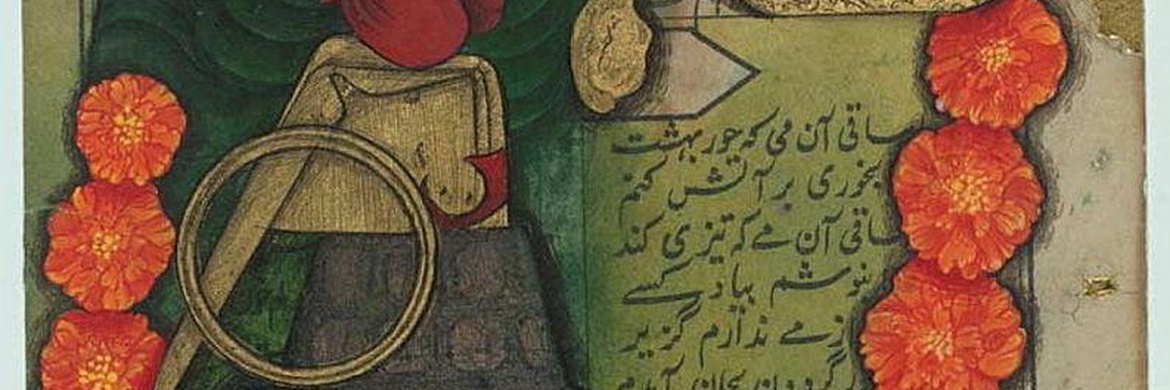 ساقی آن می که حور بهشت
بخوری بر آتش کنم
ساقی آن مے که تیزی کند
بنوشم بیاد کسے
زمے ندارم گزیر